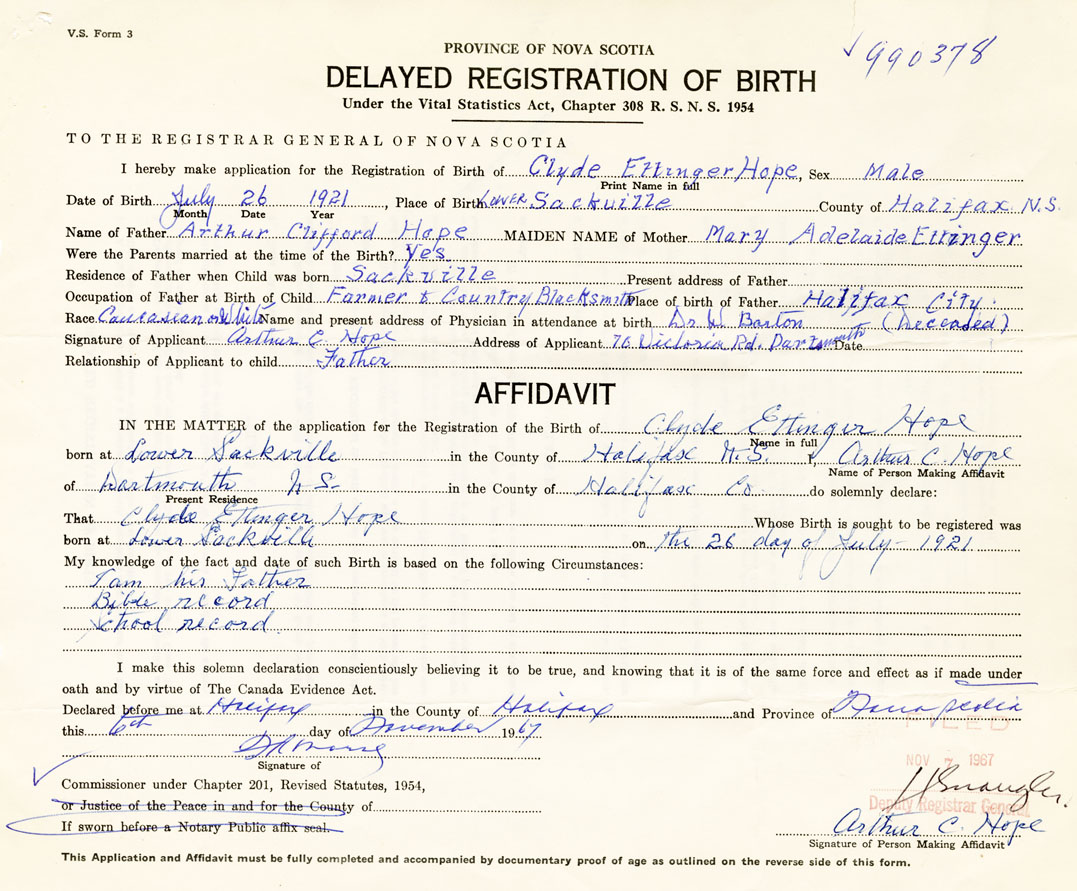 V.S. Form 3
990378
PROVINCE OF NOVA SCOTIA
DELAYED REGISTRATION OF BIRTH
Under the Vital Statistics Act, Chapter 308 R. S. N. S. 1954
TO THE REGISTRAR GENERAL OF NOVA SCOTIA
I hereby make application for the Registration of Birth of Clyde Ettinger Hope, Sex Male
Print Name in full
Date of Birth July 26 1921, Place of Birth Lower Sackville County of Halifax N.S.
Month Date Year
Name of Father Arthur Clifford Hope MAIDEN NAME of Mother Mary Adelaide Ettinger
Were the Parents married at the time of the Birth? Yes
Residence of Father when Child was born Sackville Present address of Father
Occupation of Father at Birth of Child Farmer & Country Blacksmith Place of birth of Father Halifax City.
Race Caucasean or White Name and present address of Physician in attendance at birth Dr W. Barton (Deceased)
Signature of Applicant Arthur C Hope Address of Applicant 76 Victoria Rd. Dartmouth Date
Relationship of Applicant to child Father
AFFIDAVIT
IN THE MATTER of the application for the Registration of the Birth of Clyde Ettinger Hope
Name in full
born at Lower Sackville in the County of Halifax N.S. I, Arthur C. Hope
Name of Person Making Affidavit
of Dartmouth N.S. in the County of Halifax Co. do solemnly declare:
Present Residence
That Clyde Ettinger Hope Whose Birth is sought to be registered was
born at Lower Sackville on the 26 day of July - 1921
My knowledge of the fact and date of such Birth is based on the following Circumstances:
I am his Father
Bible record
School record.
I make this solemn declaration conscientiously believing it to be true, and knowing that it is of the same force and effect as if made under
oath and by virtue of The Canada Evidence Act.
Declared before me at Halifax in the County of Halifax and Province of Nova Scotia
this 6th day of November 1967
FILED
Signature of
NOV 7 1967
Commissioner under Chapter 201, Revised Statutes, 1954,
or Justice of the Peace in and for the County of
Deputy Registrar General
If sworn before a Notary Public affix seal.
Arthur C. Hope
Signature of Person Making Affidavit
This Application and Affidavit must be fully completed and accompanied by documentary proof of age as outlined on the reverse side of this form.